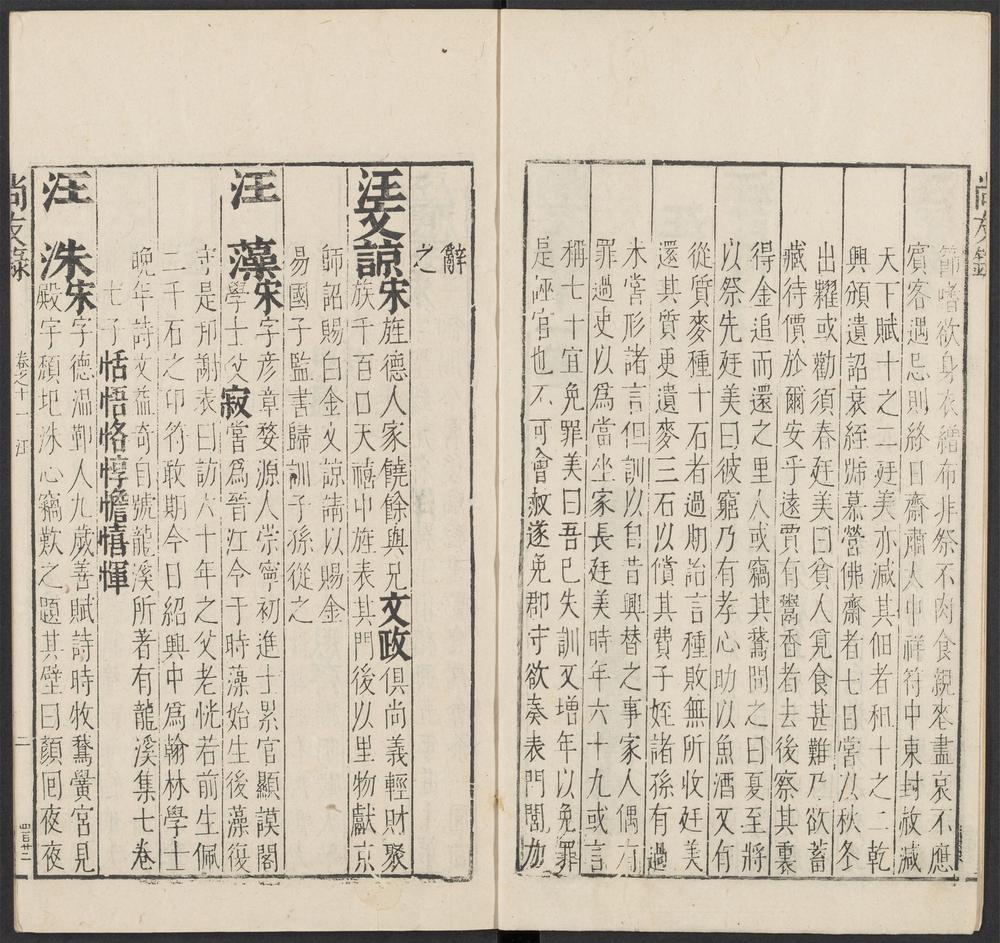 節嗜欲身衣繒布非祭不肉食親喪盡哀不應
賓客遇忌則終日齋肅大中祥符中東封赦減
天下賦十之二廷美亦減其佃者租十之二乾
興頒遺詔衰絰號慕營佛齋者七日嘗以秋冬
出糶或勸須春廷美曰貧人覓食甚難乃欲蓄
藏待價於爾安乎遠賈有鬻香者去後察其裹
得金追而還之里人或竊其鶩問之曰夏至將
以祭先廷美曰彼窮乃有孝心助以魚酒又有
從質麥種十石者過期詒言種敗無所收廷美
還其質更遺麥三石以償其費子姪諸孫有過
未嘗形諸言但訓以自昔興替之事家人偶有
罪過吏以為當坐家長廷美時年六十九或言
稱七十宜免罪美曰吾已失訓又增年以免罪
是誣官也不可會赦遂免郡守欲奏表門閭力
辭
之
汪文諒宋旌德人家饒餘與兄文政俱尚義輕財聚
族千百口天禧中旌表其門後以里物獻京
師詔賜白金文諒請以賜金
易國子監書歸訓子孫從之
汪藻宋字彥章婺源人崇寧初進士累官顯謨閣
學士父寂嘗為晉江令于時藻始生後藻復
守是邦謝表曰訪六十年之父老恍若前生佩
二千石之印符敢期今日紹興中為翰林學士
晚年詩文益奇自號龍溪所著有龍溪集七卷
七子恬悟恪惇憺憘惲
汪洙宋字德溫鄞人九歲善賦詩時牧鶩黌宮見
殿宇頹圮洙心竊歎之題其壁曰顏回夜夜
尚友錄
卷之十一
汪
二
四百廿三